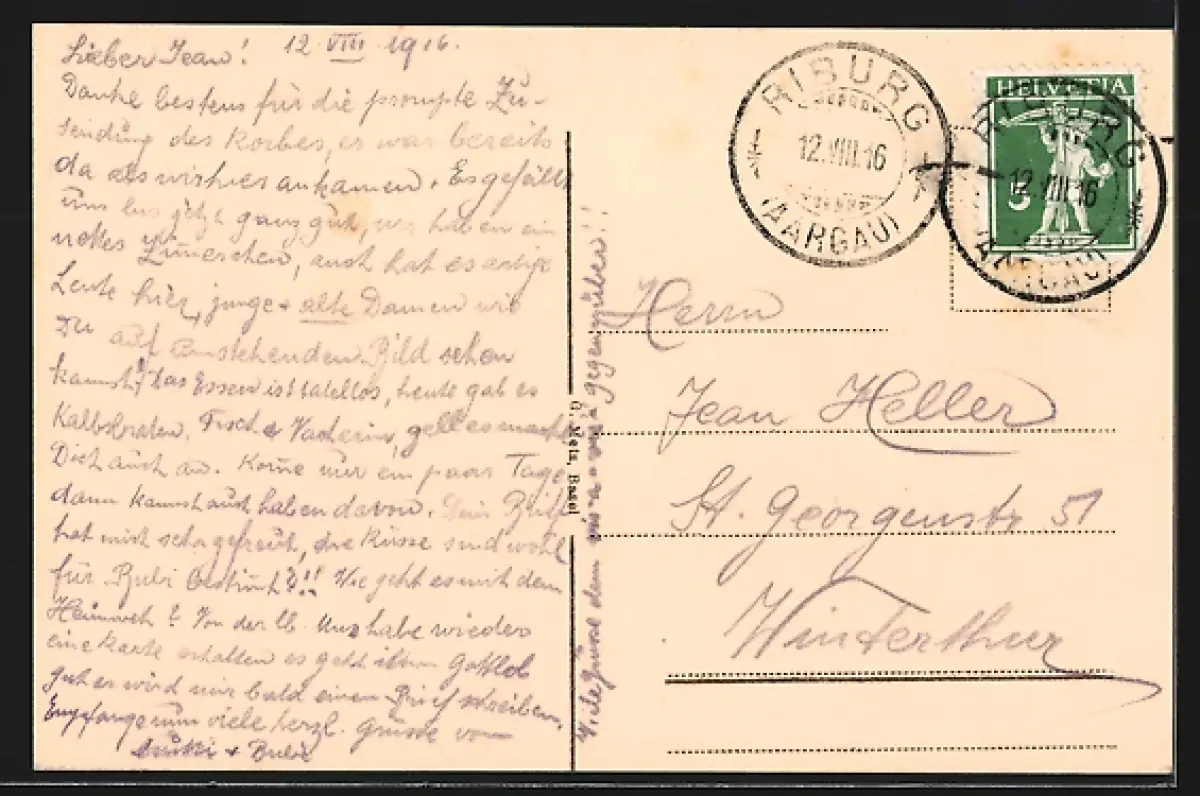 Lieber Jean! 12 VIII 1916.
Danke bestens für die prompte Zu-
sendung des Korbes, er war bereits
da als wir hier ankamen. Es gefällt
uns bis jetzt ganz gut, wir haben ein
nettes Zimerchen, auch hat es artige
Leute hier, junge + alte Damen wie
Du auf Bild sehen
kannst! Das Essen ist tadellos, heute gab es
Kalbsbraten, Fisch & Vacherin, gell es macht
Dich auch an. Kome nur ein paar Tage
dann kannst auch haben davon. Dein Brief
hat mich sehr gefreut, die Küsse sind wohl
für Bubi bestimt?!! Wie geht es mit dem
Heimweh? Von der lb. habe wieder
eine Karte erhalten es geht ihnen Gottlob
gut er wird mir bald einen Brief schreiben.
Empfange nun viele herzl. Grüsse von
+ Bubi
dem gegenüber!!
G. Metz, Basel
RIBURG
12.VIII.16
(AARGAU)
HELVETIA
5
RIBURG
12.VIII.16
(AARGAU)
Herrn
Jean Heller
St. Georgenstr 51
Winterthur